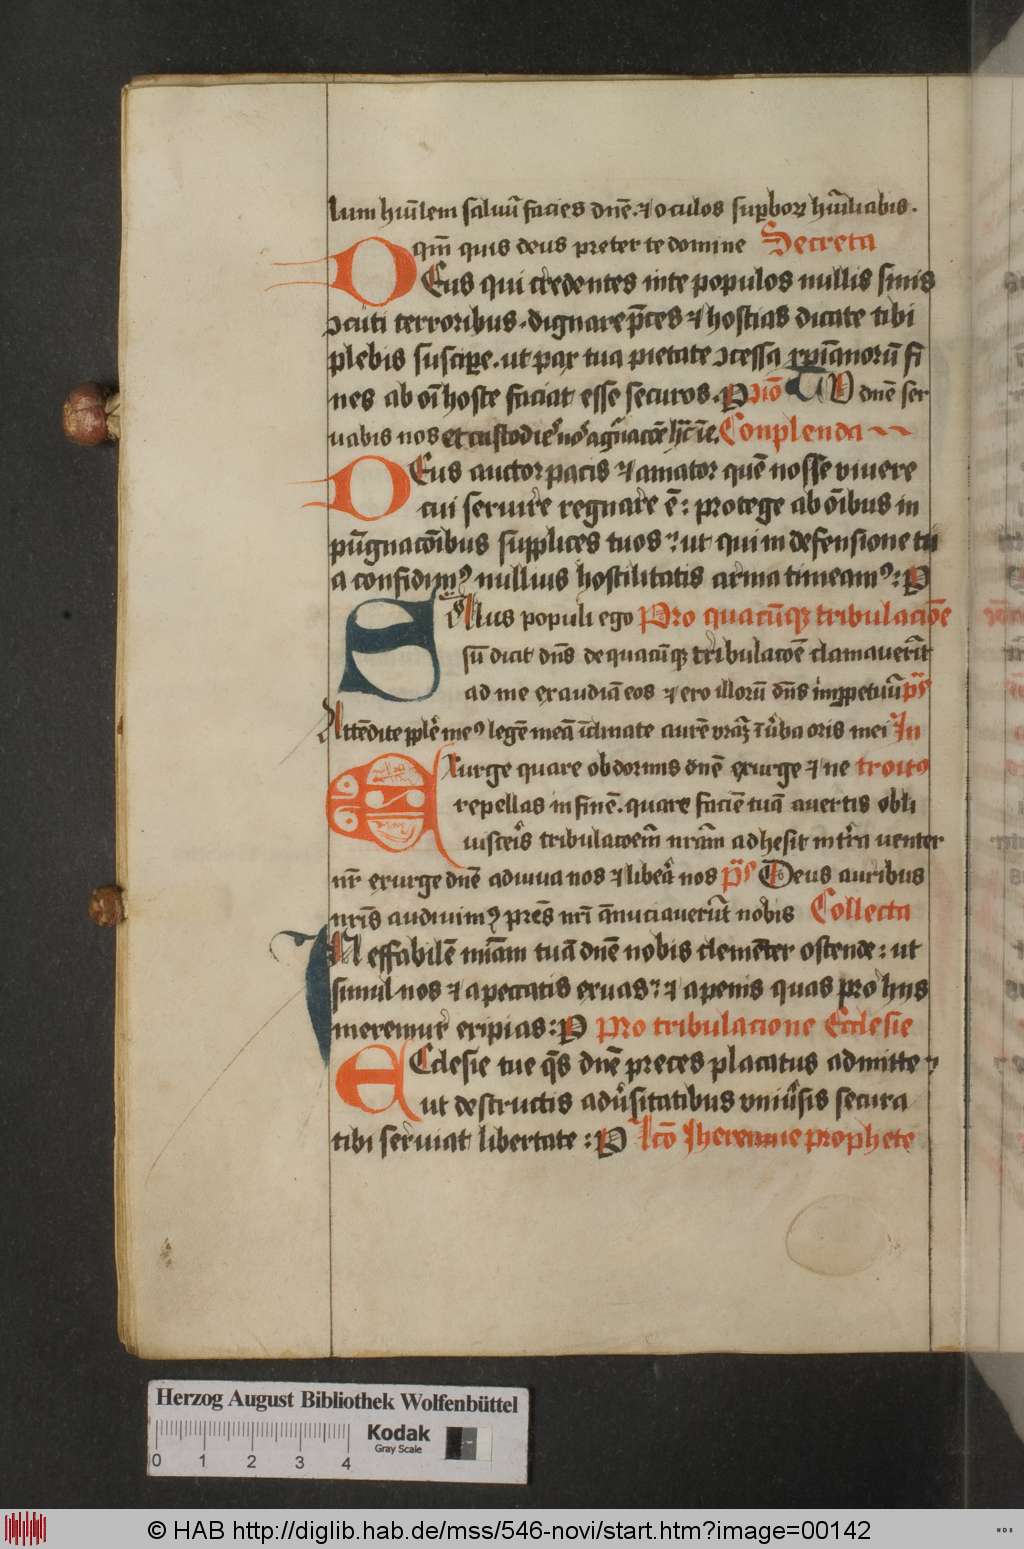 lum hūilem saluū facies dnē ⁊ oculos supbor hūiliabis.
Qm̄ quis deus preter te domine Secreta
DEus qui credentes in te populos nullis sinis
ↄcuti terroribus. dignare p̄ces ⁊ hostias dicate tibi
plebis suscipe. ut pax tua pietate ↄcessa xp̄ianorū fi
nes ab oī hoste faciat esse securos. P Cōio TU dnē ser
uabis nos et custodies nos a gn̄acōe Conplenda
DEus auctor pacis ⁊ amator quē nosse viuere
cui seruire regnare ē: protege ab oībus in
pugnacōibus supplices tuos: ut qui in defensione tu
a confidimꝰ nullius hostilitatis arma timeamꝰ: P
SAlus populi ego Pro quacūqꝫ tribulacōe
sū dicit dn̄s de quacūqꝫ tribulacōe clamauerīt
ad me exaudiā eos ⁊ ero illorū dn̄s in ppetuū ps̄
Attēdite pple meꝰ legē meā īclinate aurē vrāꝫ ī ūba oris mei In
Exurge quare obdormis dnē exurge ⁊ ne troitꝰ
repellas in finē. quare faciē tuā auertis obli
uisceris tribulacoem̄ nrām adhesit in tr̄a venter
nr̄ exurge dnē adiuua nos ⁊ libera nos ps̄ Deus auribus
nr̄is audiuimꝰ prēs nr̄i ānuciauerūt nobis Collecta
INeffabilē mīam tuā dnē nobis clemēter ostende: ut
simul nos ⁊ a peccatis exuas: ⁊ a penis quas pro hijs
meremur eripias: P Pro tribulacione Ecclesie
ECclesie tue qs̄ dnē preces placatus admitte
ut destructis adūsitatibus vniūsis secura
tibi seruiat libertate: P Lcō Iheremie prophete
Herzog August Bibliothek Wolfenbüttel
Kodak
Gray Scale
0 1 2 3 4
© HAB http://diglib.hab.de/mss/546-novi/start.htm?image=00142